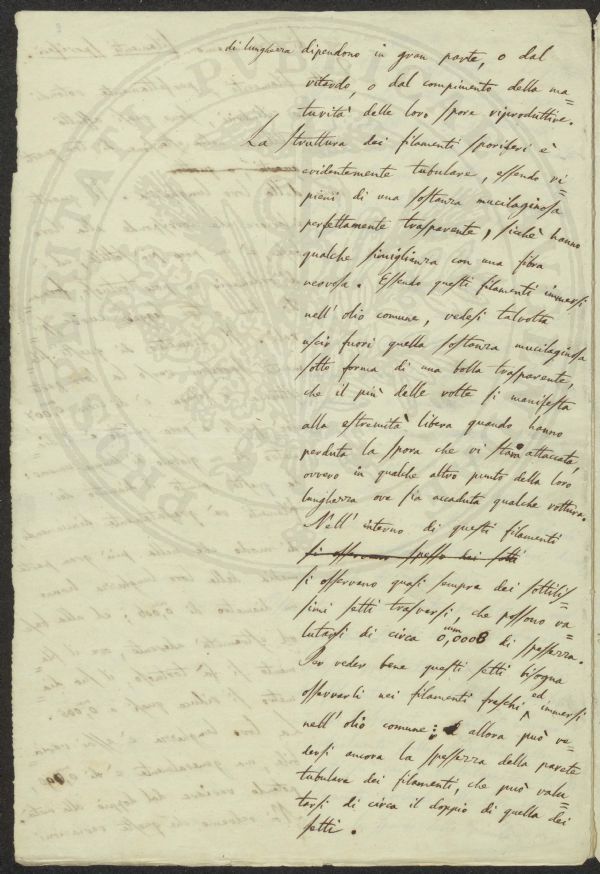 di lunghezza dipendono in gran parte, o dal
ritardo, o dal compimento della ma=
turità delle loro spore riproduttive.
La struttura dei filamenti sporiferi è
evidentemente tubulare, essendo ri=
pieni di una sostanza mucilaginosa
perfettamente trasparente, sicchè hanno
qualche simiglianza con una fibra
nervosa. Essendo questi filamenti immersi
nell'olio comune, vedesi talvolta
uscir fuori quella sostanza mucilaginosa
sotto forma di una bolla trasparente,
che il più delle volte si manifesta
alla estremità libera quando hanno
perduta la spora che vi stava attaccata,
ovvero in qualche altro punto della loro
lunghezza ove sia accaduta qualche rottura.
Nell'interno di questi filamenti
si osservano spesso dei setti
si osservano quasi sempre dei sottilis=
simi setti trasversi, che possono va=
lutarsi di circa 0,mm0008 di spessezza.
Per veder bene questi setti bisogna
osservarli nei filamenti freschi ed immersi
nell'olio comune: allora può ve=
dersi ancora la spessezza della parete
tubulare dei filamenti, che può valu=
tarsi di circa il doppio di quella dei
setti.